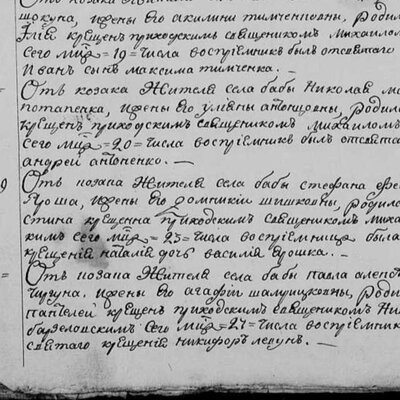 Отъ козака жителя
жены его акилины тимченковны, Родил
Ілія крещенъ приходскимъ священникомъ михаиломъ
сего мца = 19 = числа воспріемникъ былъ отсвятаго
Иванъ сынъ максима тимченка. —
Отъ козака жителя села бабы Николая
потапенка, жены его уляны антоновны, родил
крещенъ приходскимъ священникомъ михаиломъ
сего мца = 20 = числа воспріемникъ былъ отсвята
андрей антоненко. —
9 Отъ козака жителя села бабы стефана
Яроша, жены его домникіи шишковны, родил
стина крещенна приходскимъ священникомъ миха
комъ сего мца = 23 = числа воспріемница была
крещенія наталія дочь василия ярошка. —
= Отъ козака жителя села бабы павла
чугуна, жены его агафіи, роди
пантелей крещенъ приходскимъ священникомъ
сего мца = 27 = числа воспріемник
святаго крещенія никифоръ. —